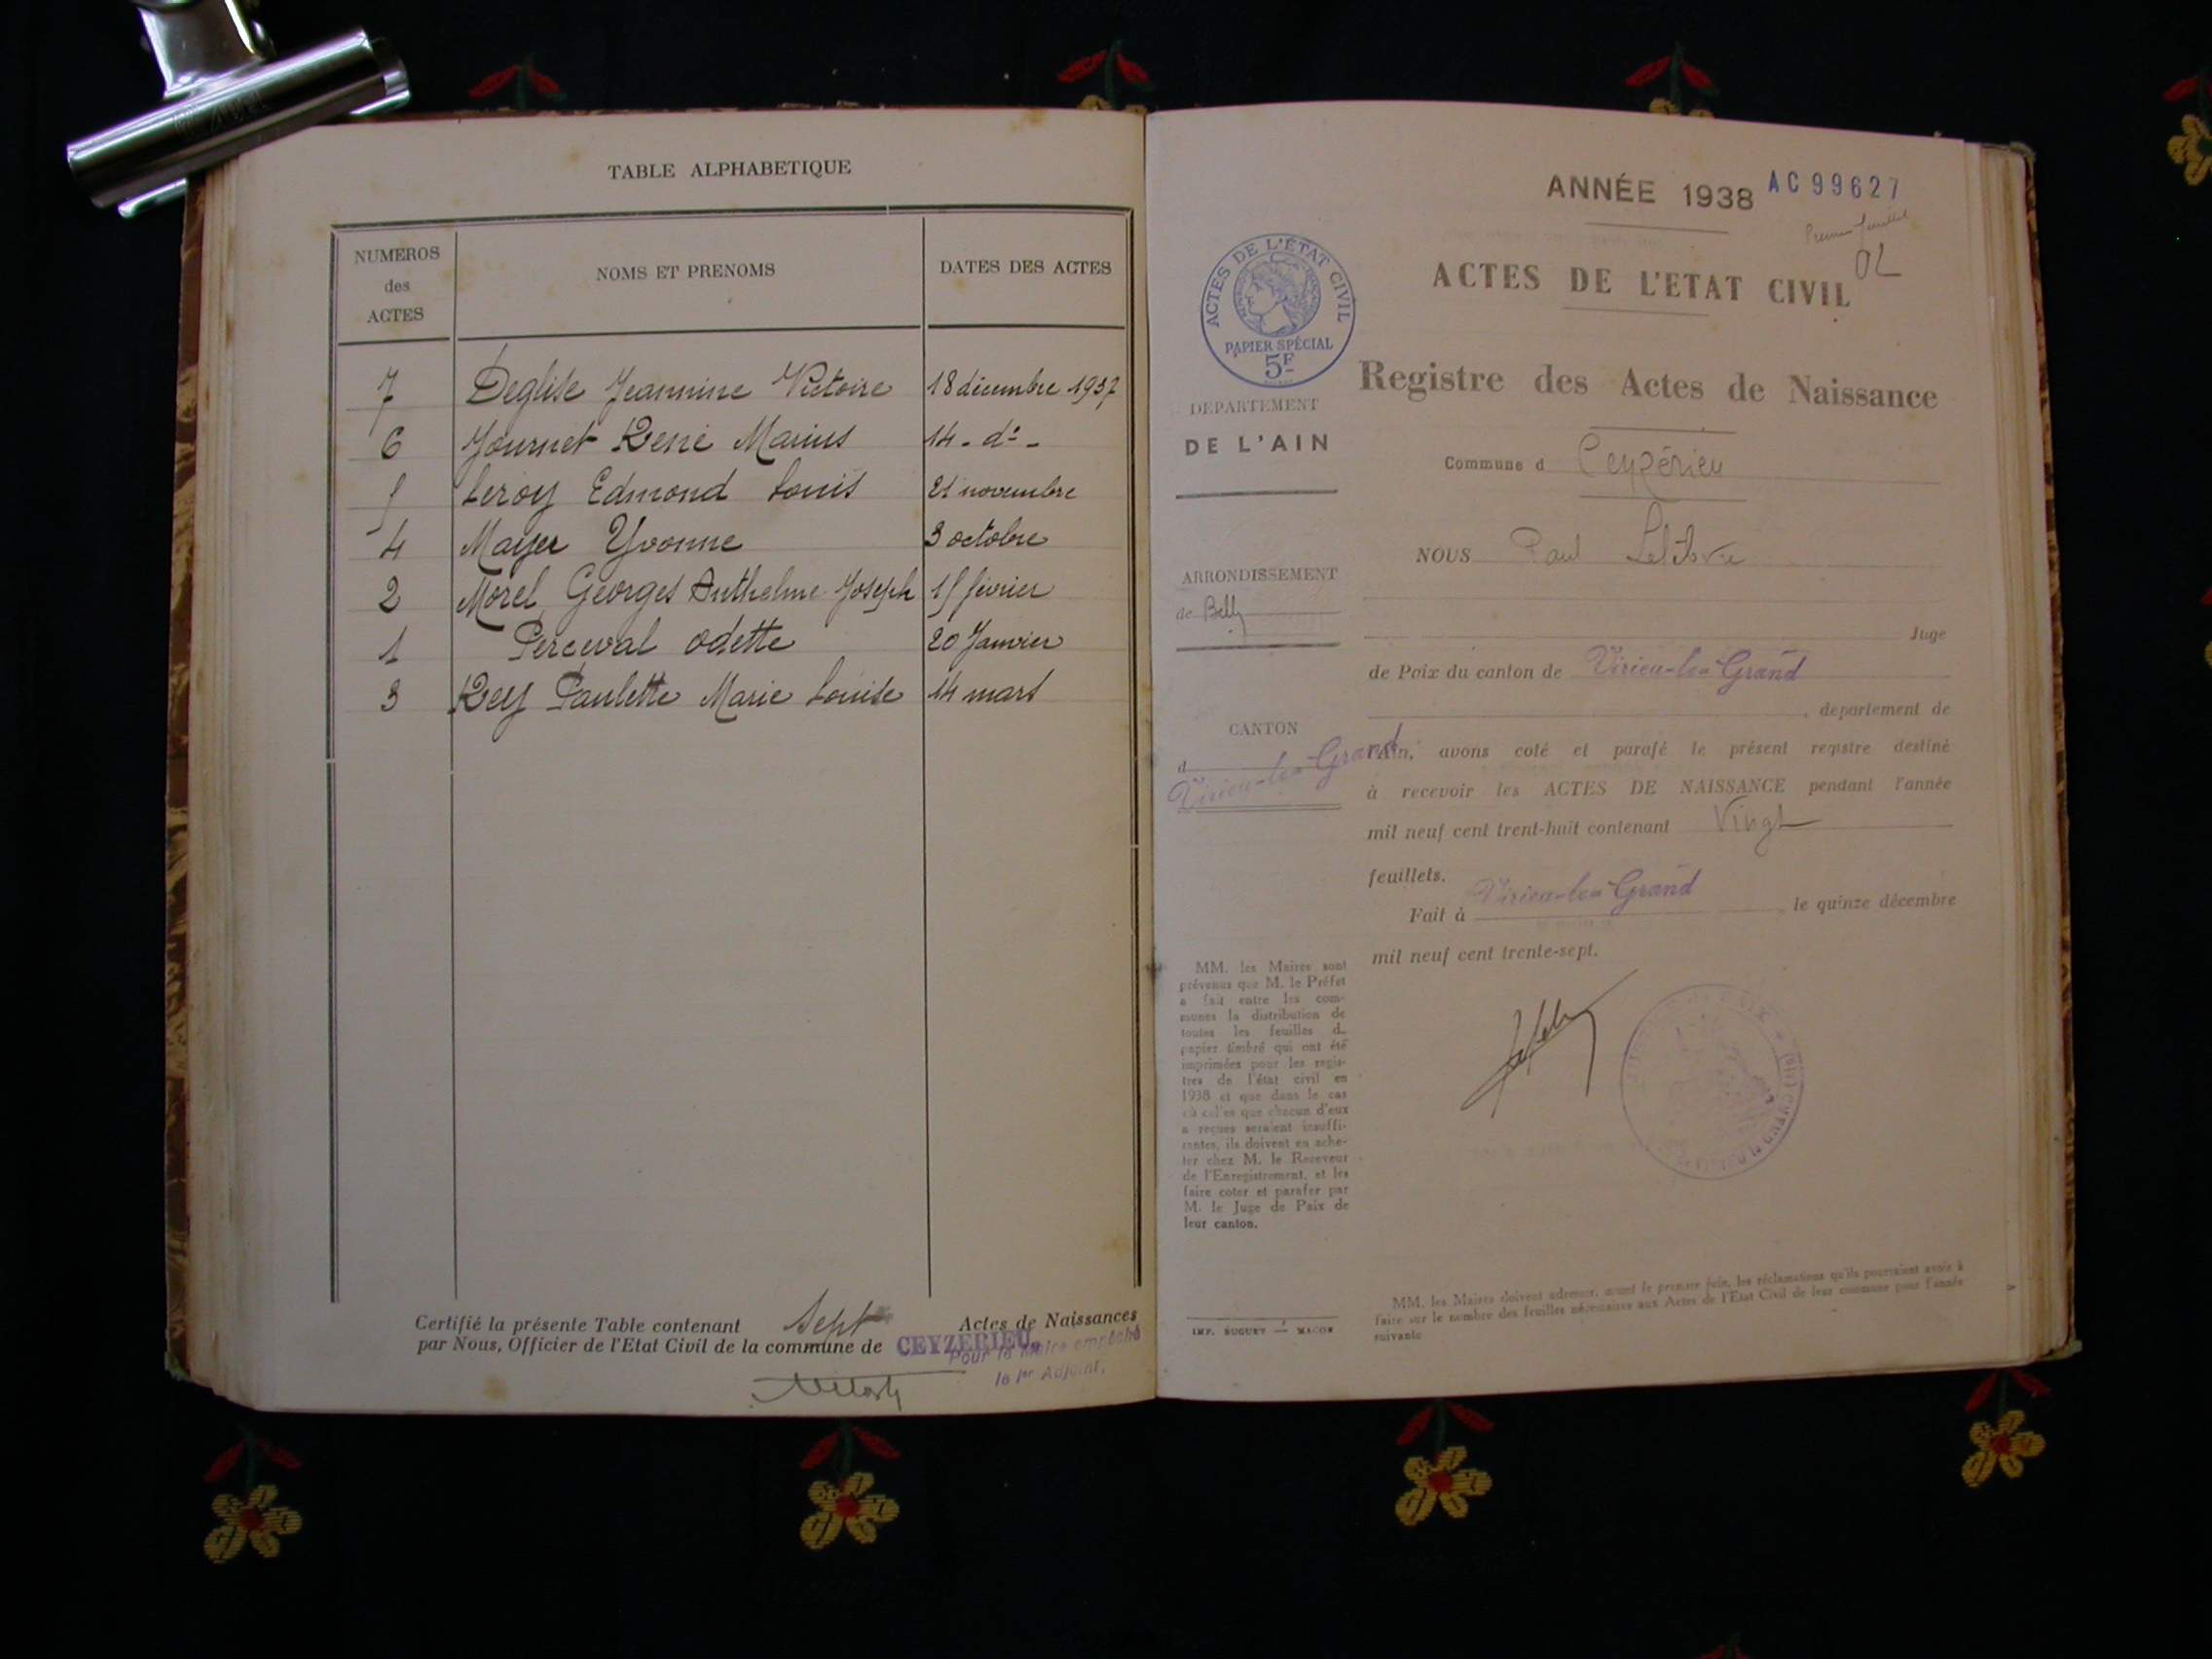 TABLE ALPHABETIQUE
NUMEROS des ACTES
NOMS ET PRENOMS
DATES DES ACTES
7 Deglise Jeannine Victoire 18 décembre 1937
6 Journet René Marius 14 - d° -
5 Leroy Edmond Louis 21 novembre
4 Mayer Yvonne 3 octobre
2 Morel Georges Anthelme Joseph 15 février
1 Perceval Odette 20 Janvier
3 Rey Paulette Marie Louise 14 mars
Certifié la présente Table contenant Sept Actes de Naissances
par Nous, Officier de l'Etat Civil de la commune de CEYZERIEU,
Pour le Maire empêché
le 1er Adjoint,
ANNÉE 1938 AC 99627
Premier feuillet
ACTES DE L'ETAT CIVIL
ACTES DE L'ÉTAT CIVIL
PAPIER SPÉCIAL
5F
Registre des Actes de Naissance
DEPARTEMENT
DE L'AIN
Commune d Ceyzérieu
ARRONDISSEMENT
de Belley
CANTON
d
Virieu-le-Grand
NOUS Paul Lefebvre
Juge
de Paix du canton de Virieu-le-Grand
, departement de
l'Ain, avons coté et parafé le présent registre destiné
à recevoir les ACTES DE NAISSANCE pendant l'année
mil neuf cent trent-huit contenant Vingt
feuillets.
Fait à Virieu-le-Grand le quinze décembre
mil neuf cent trente-sept.
MM. les Maires sont
prévenus que M. le Préfet
a fait entre les com-
munes la distribution de
toutes les feuilles de
papier timbré qui ont été
imprimées pour les regis-
tres de l'état civil en
1938 et que dans le cas
où celles que chacun d'eux
a reçues seraient insuffi-
santes, ils doivent en ache-
ter chez M. le Receveur
de l'Enregistrement, et les
faire coter et parafer par
M. le Juge de Paix de
leur canton.
IMP. BUGUET — MACON
MM. les Maires doivent adresser, avant le premier juin, les réclamations qu'ils pourraient avoir à
faire sur le nombre des feuilles nécessaires aux Actes de l'Etat Civil de leur commune pour l'année
suivante